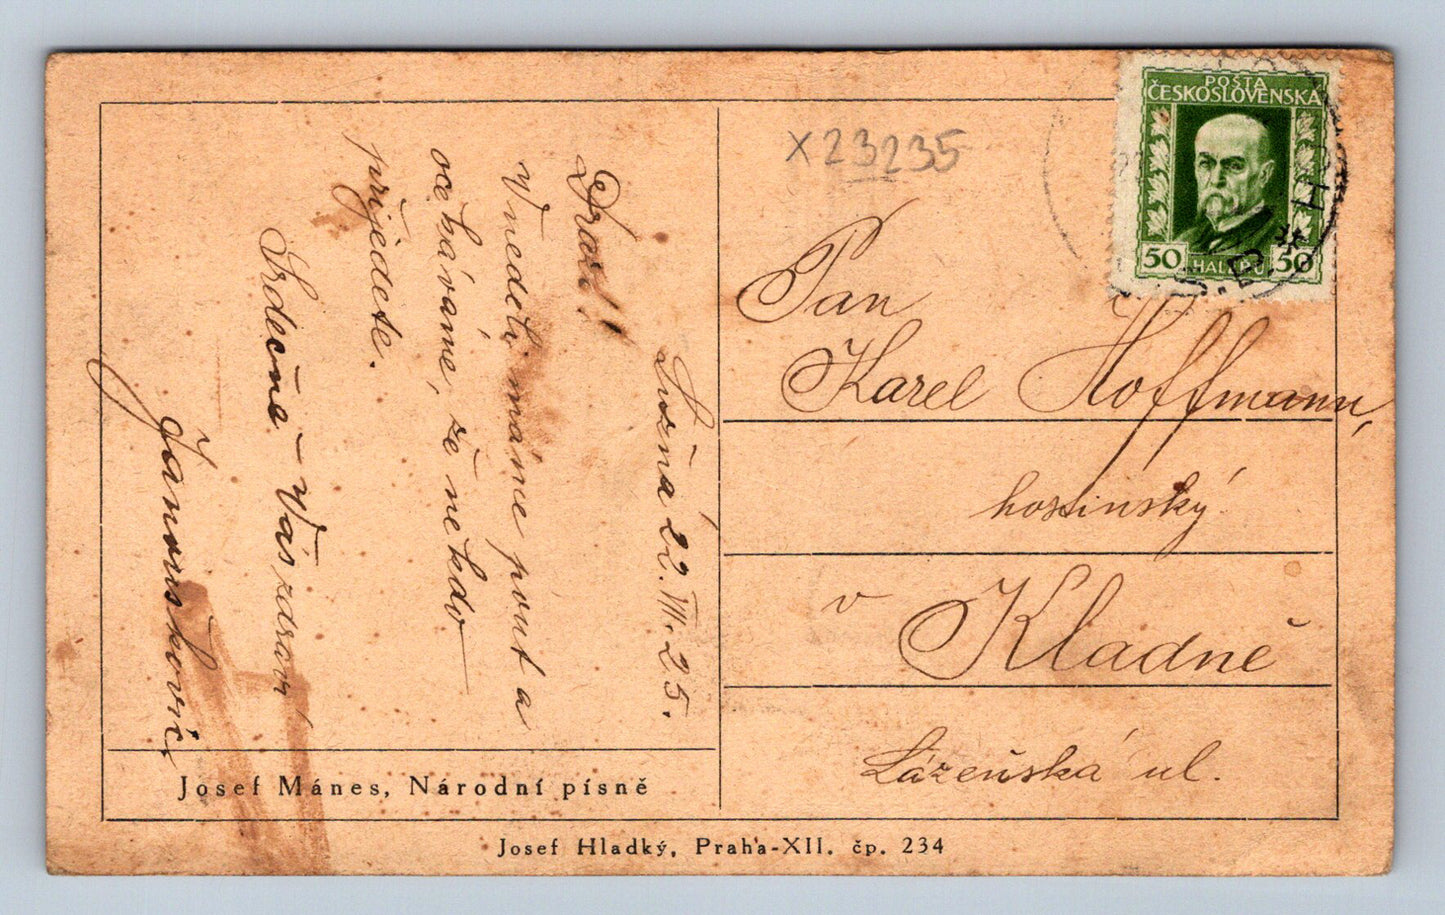 Lužná 22. VII. 25.
Drazí!
V neděli máme pouť a
očekáváme, že někdo
přijedete.
Srdečně Vás zdraví
Janouškovic
Josef Mánes, Národní písně
Josef Hladký, Praha-XII. čp. 234
x23235
POŠTA
ČESKOSLOVENSKÁ
50 HALÉŘŮ 50
Pan
Karel Hoffmann,
hostinský
v Kladně
Lázeňská ul.